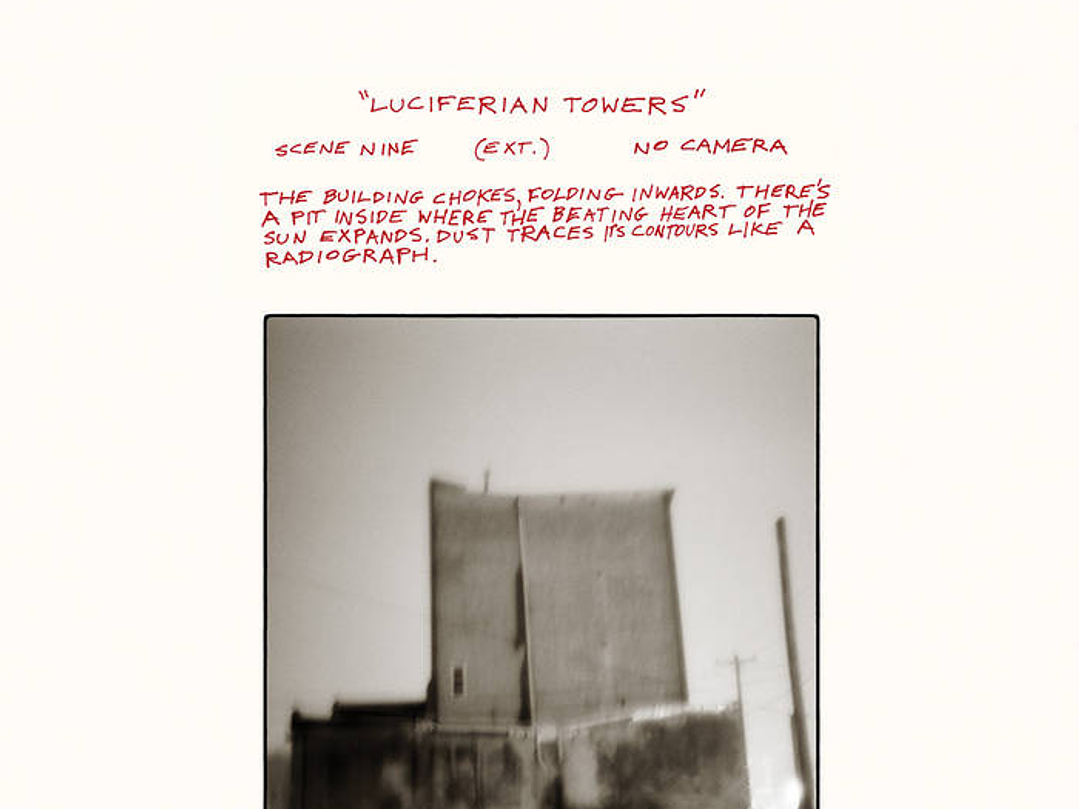 "LUCIFERIAN TOWERS"
SCENE NINE (EXT.) NO CAMERA
THE BUILDING CHOKES, FOLDING INWARDS. THERE'S
A PIT INSIDE WHERE THE BEATING HEART OF THE
SUN EXPANDS. DUST TRACES ITS CONTOURS LIKE A
RADIOGRAPH.